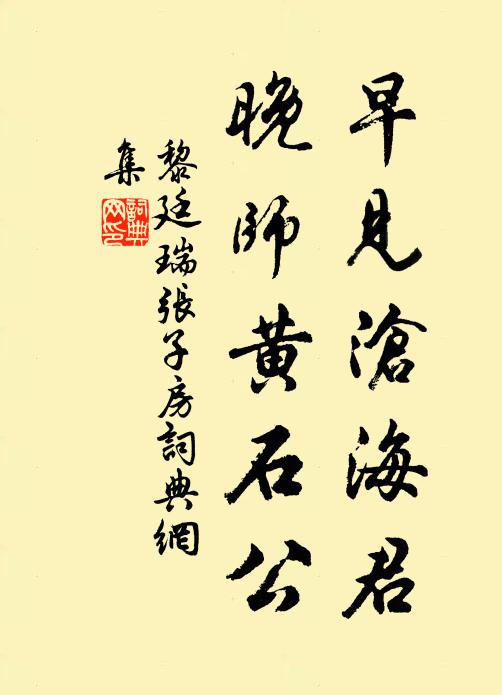 早見滄海君
晚師黃石公
黎廷瑞張子房詞典網
集
詞典網印